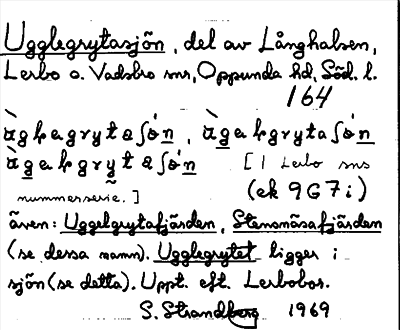 Ugglegrytasjön, del av Långhalsen,
Lerbo o. Vadsbro snr, Oppunda hd, Söd. l.
164
[I Lerbo sns
nummerserie.] (ek 9G7i)
även: Uggelgrytafjärden, Stensnäsafjärden
(se dessa namn). Ugglegrytet ligger i
sjön (se detta). Uppt. eft. Lerbobor.
S. Strandberg 1969